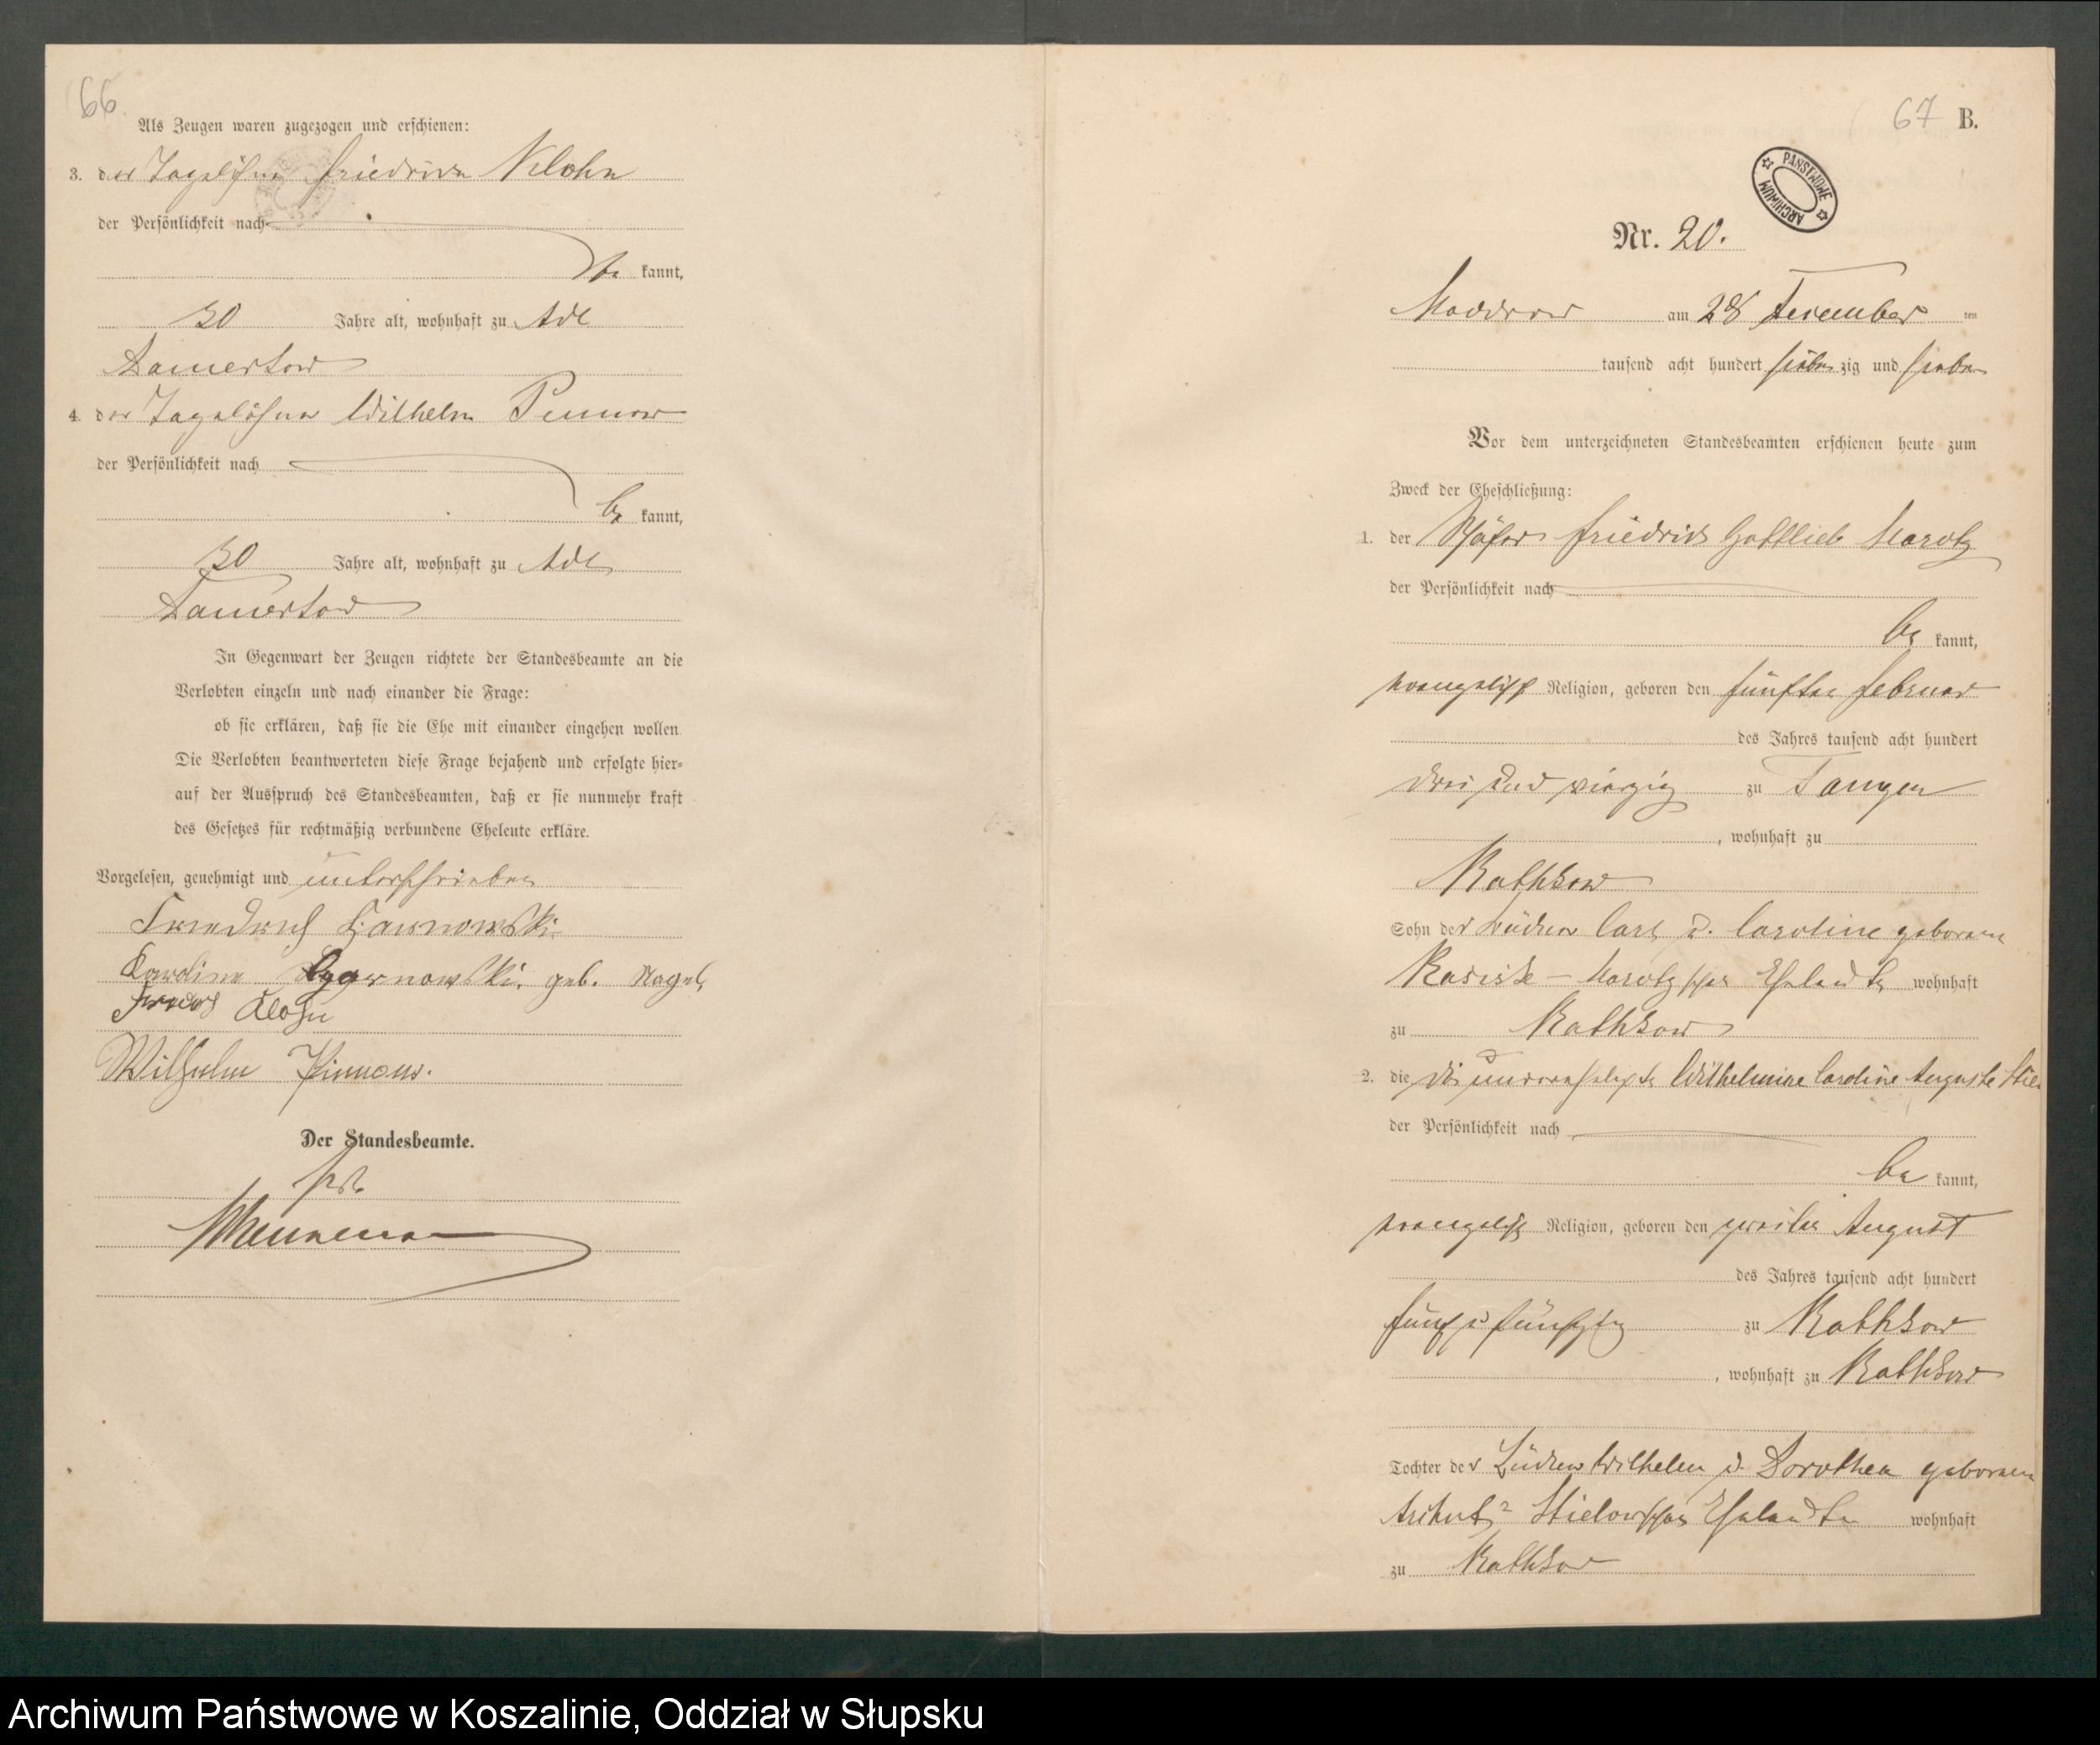 66
Als Zeugen waren zugezogen und erschienen:
3. der Tagelöhner Friedrich Klohn
der Persönlichkeit nach
be kannt,
30 Jahre alt, wohnhaft zu Adl
Damerkow
4. der Tagelöhner Wilhelm Pinnow
der Persönlichkeit nach
be kannt,
30 Jahre alt, wohnhaft zu Adl
Damerkow
In Gegenwart der Zeugen richtete der Standesbeamte an die
Verlobten einzeln und nach einander die Frage:
ob sie erklären, daß sie die Ehe mit einander eingehen wollen.
Die Verlobten beantworteten diese Frage bejahend und erfolgte hier-
auf der Ausspruch des Standesbeamten, daß er sie nunmehr kraft
des Gesetzes für rechtmäßig verbundene Eheleute erkläre.
Vorgelesen, genehmigt und unterschrieben
Friedrich
Karoline geb. Nagel
Klohn
Wilhelm Pinnow.
Der Standesbeamte.
67 B.
PAŃSTWOWE ARCHIWUM
Nr. 20.
Moddrow am 28 Dezember ten
tausend acht hundert sieben zig und sieben
Vor dem unterzeichneten Standesbeamten erschienen heute zum
Zweck der Eheschließung:
1. der Schäfer Friedrich Gottlieb Marotz
der Persönlichkeit nach
be kannt,
evangelisch Religion, geboren den fünften Februar
des Jahres tausend acht hundert
drei und vierzig zu Tangen
, wohnhaft zu
Kathkow
Sohn der Carl u. Caroline geborene
Marotzschen Eheleute wohnhaft
zu Kathkow
2. die die unverehelichte Wilhelmine Caroline Auguste
der Persönlichkeit nach
be kannt,
evangelisch Religion, geboren den zweiten August
des Jahres tausend acht hundert
fünf u fünfzig zu Kathkow
, wohnhaft zu Kathkow
Tochter der Wilhelm u. Dorothea geborene
Stielowschen Eheleute wohnhaft
zu Kathkow
Archiwum Państwowe w Koszalinie, Oddział w Słupsku